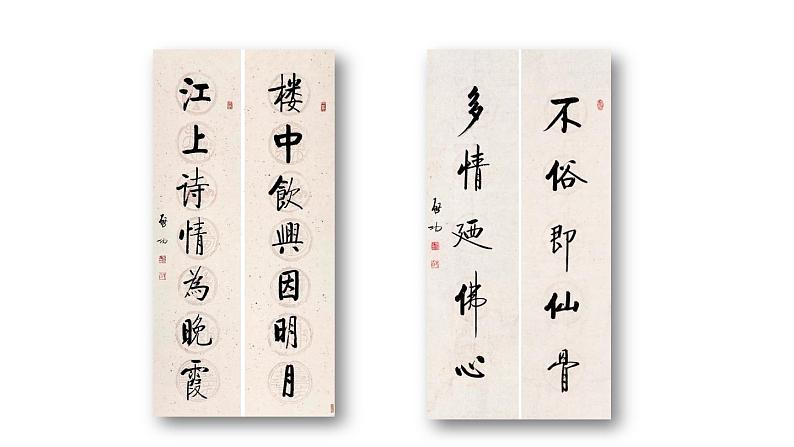 楼中飲興因明月
江上诗情為晚霞
啟功
不俗即仙骨
多情廼佛心
啟功